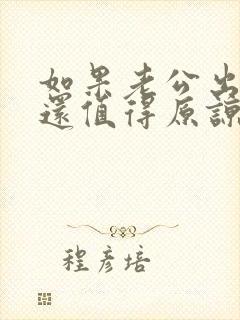 如果老公出
還值得原諒
程彥培